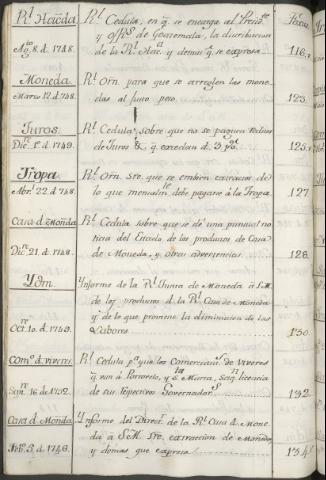 Rl. Hacda.
Agto. 8. d. 1748.
Rl. Cedula, en q. se encarga al Preside.
y ofs. Rs. de Goatemala, la distribucion
de la Rl. Haca. y demas q. se expresa
116.
Moneda
Marzo 12. d. 748.
Rl. Orn. para que se arreglen las mone
das al justo peso
123.
Juros.
Dice. 1o. d. 1749.
Rl. Cedula, sobre que no se paguen reditos
de Juros & q. excedan d. 3 pg.
125.
Tropa
Abr. 22. d. 748.
Rl. Orn. sre. que se embien razones de
lo que mensualmte. debe pagarse á la Tropa
127
Casa d. Monda.
Dice. 21. d. 748.
Rl. Cedula sobre que se dé una puntual no
ticia del Estado de los productos de Casa
de Moneda, y otras advertencias
128
Ydm
Octre. 10. d. 1749.
Ynforme de la Rl. Junta de Moneda á S.M.
de los productos d. la Rl. Casa de Moneda
y de lo que proviene la diminucion de las
Labores
130.
Como. d. viveres.
Sepre. 16. de 1752.
Rl. Cedula pa. que los Comerciants. de viveres
q. van á Portovelo, y
licencia
de sus respectivos Governadors.
132.
Casa d. Monda.
Febo. 3. d. 1746.
Ynforme del Directr. de la Rl. Casa d. Mone
da á S.M. sre. extraccion de Monedas
y demas que expresa
134.